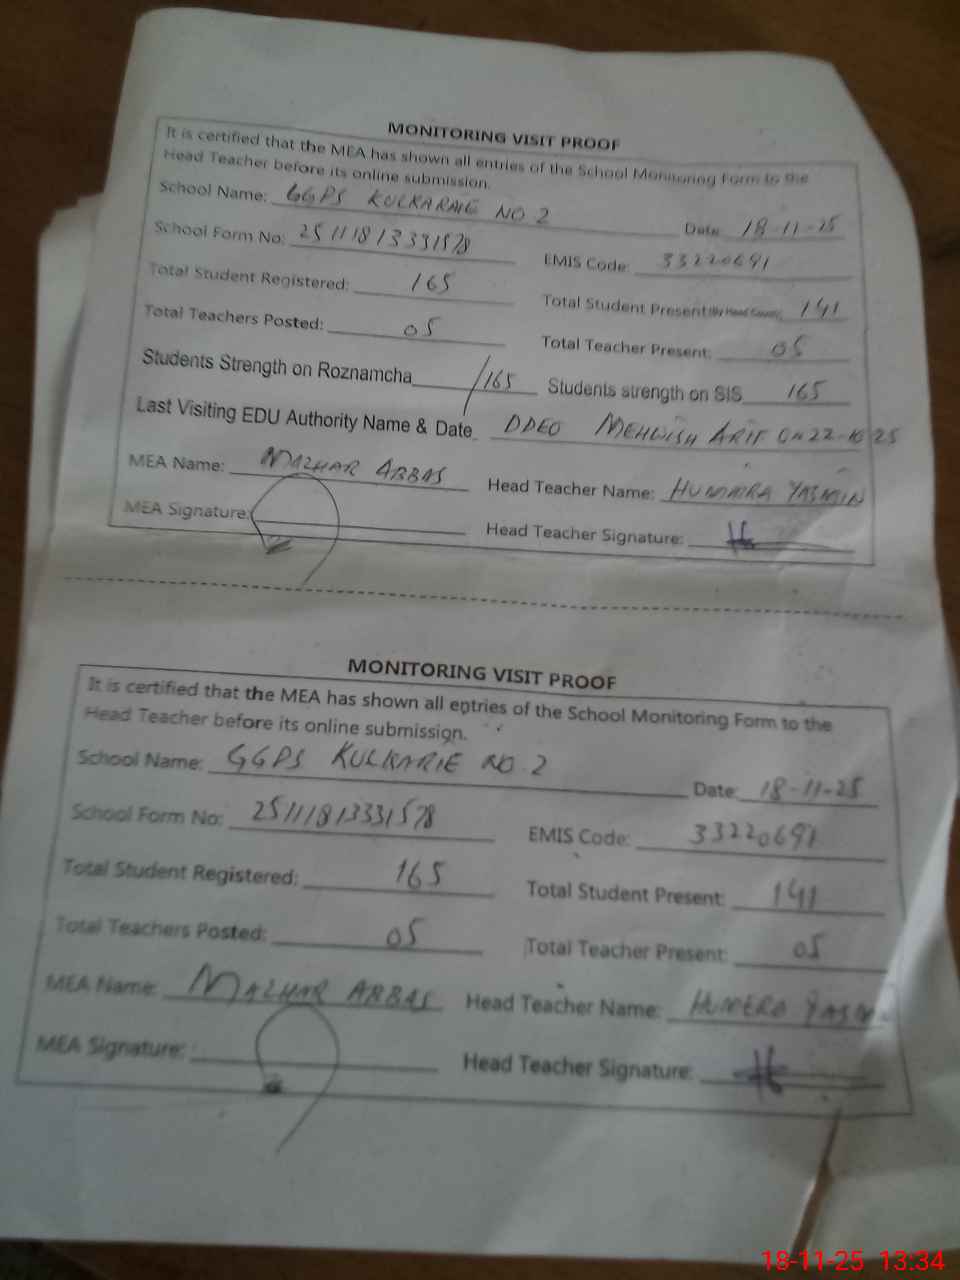 MONITORING VISIT PROOF
It is certified that the MEA has shown all entries of the School Monitoring Form to the
Head Teacher before its online submission.
School Name: GGPS KULKARAIE NO 2 Date: 18-11-25
School Form No: 25111813331578 EMIS Code: 33220691
Total Student Registered: 165 Total Student Present(By Head Count): 141
Total Teachers Posted: 05 Total Teacher Present: 05
Students Strength on Roznamcha /165 Students strength on SIS 165
Last Visiting EDU Authority Name & Date DDEO MEHWISH ARIF ON 22-10-25
MEA Name: MAZHAR ABBAS Head Teacher Name: HUMAIRA YASMIN
MEA Signature: Head Teacher Signature:
MONITORING VISIT PROOF
It is certified that the MEA has shown all entries of the School Monitoring Form to the
Head Teacher before its online submission.
School Name: GGPS KULKARIE NO 2 Date: 18-11-25
School Form No: 25111813331578 EMIS Code: 33220691
Total Student Registered: 165 Total Student Present: 141
Total Teachers Posted: 05 Total Teacher Present: 05
MEA Name: MAZHAR ABBAS Head Teacher Name: HUMERA
MEA Signature: Head Teacher Signature:
18-11-25 13:34